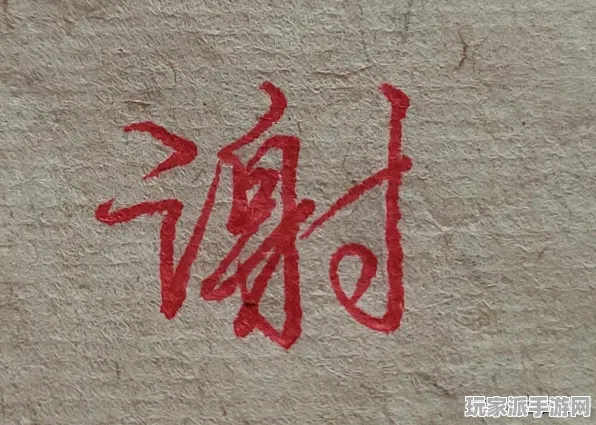 谢
玩家派手游网